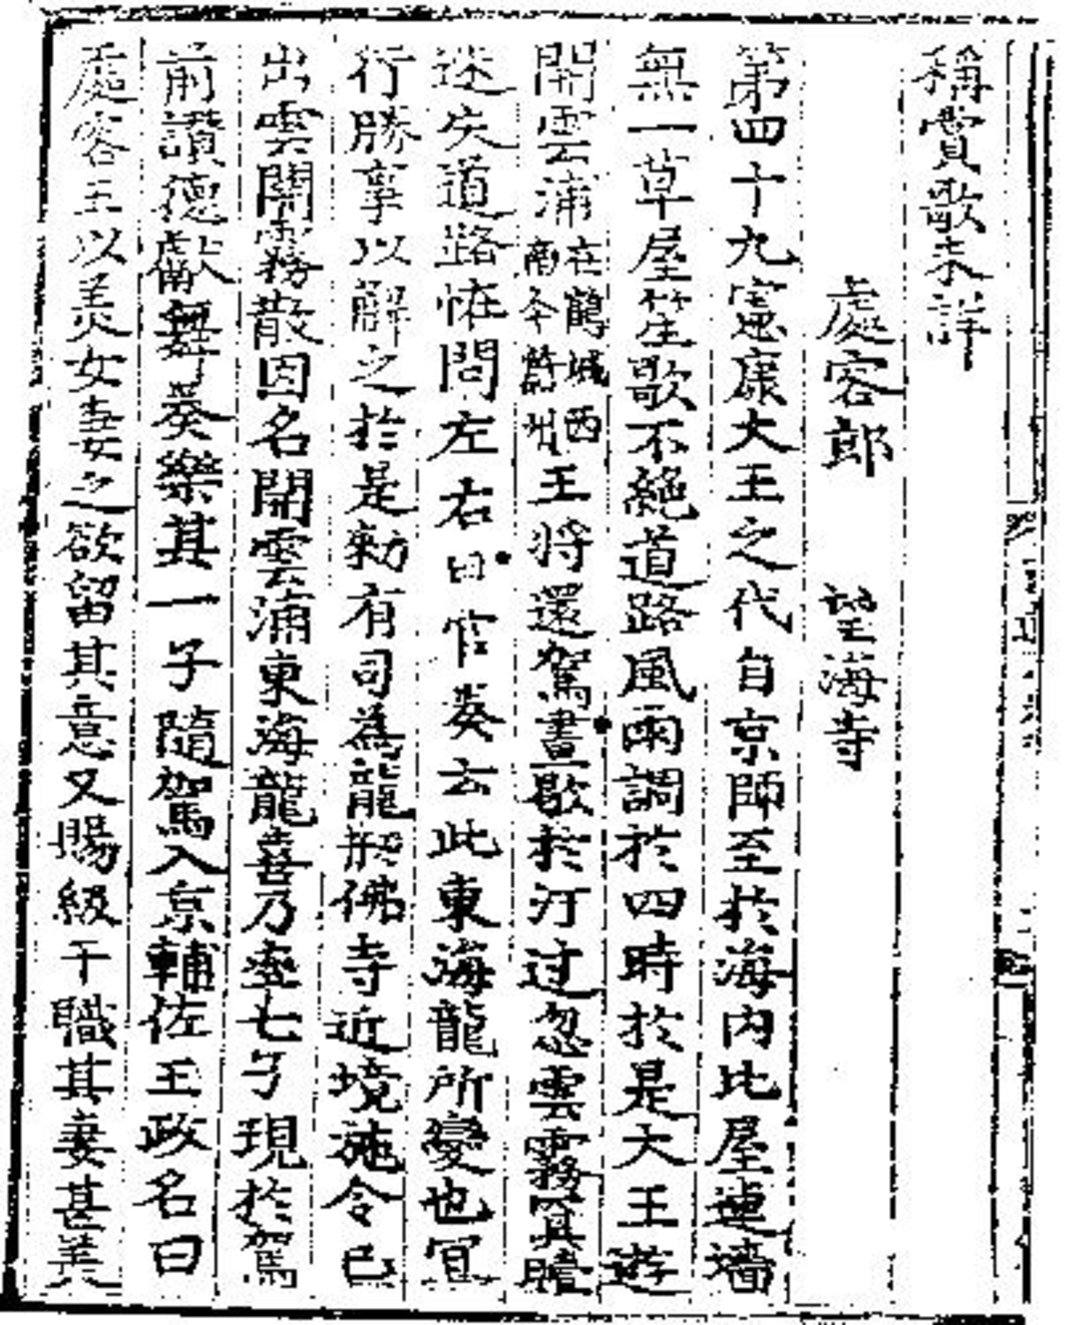 稱賞歌未詳
處容郎　望海寺
第四十九憲康大王之代自京師至於海內比屋連墻
無一草屋笙歌不絶道路風雨調於四時於是大王遊
開雲浦在鶴城西南今蔚州王將還駕晝歇於汀过忽雲霧冥曀
迷失道路怪問左右曰官奏云此東海龍所變也宜
行勝事以解之於是勑有司爲龍刱佛寺近境施令已
出雲開霧散因名開雲浦東海龍喜乃率七子現於駕
前讃德獻舞奏樂其一子隨駕入京輔佐王政名曰
處容王以美女妻之欲留其意又賜級干職其妻甚美